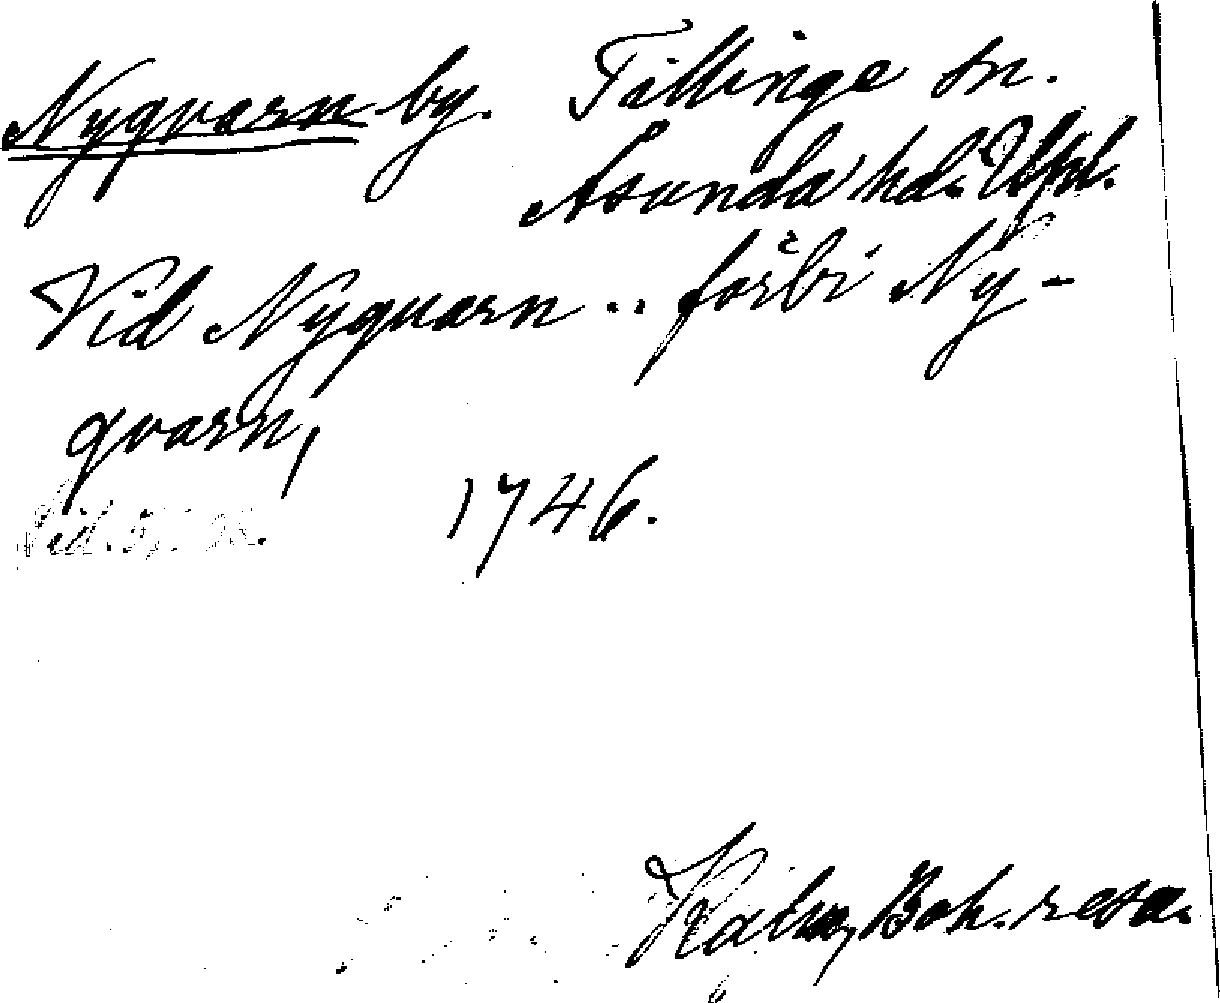 Nyqvarn by. Tillinge sn.
Åsunda hd. Upl.
Vid Nyquarn .. förbi Ny-
qvarn,
1746.
Kalm, Boh. resa.